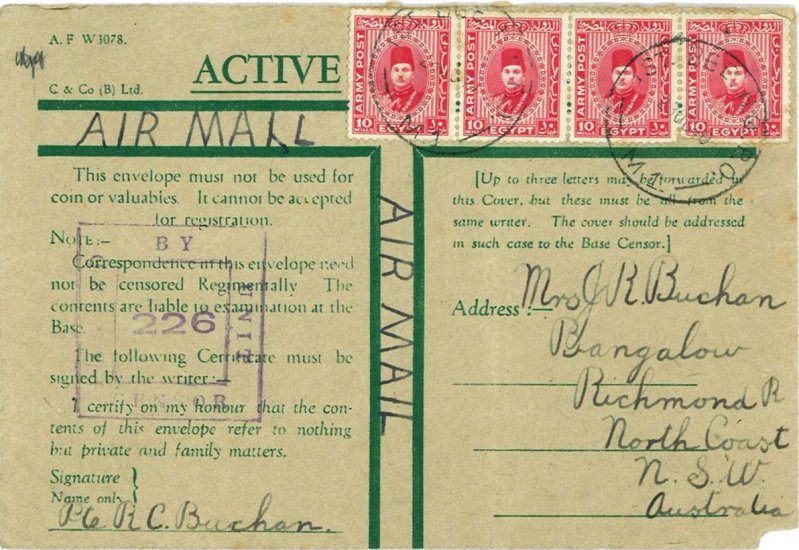 A. F W3078.
C & Co (B) Ltd.
ACTIVE
AIR MAIL
This envelope must not be used for
coin or valuables. It cannot be accepted
for registration.
NOTE:—
Correspondence in this envelope need
not be censored Regimentally The
contents are liable to examination at the
Base.
The following Certificate must be
signed by the writer:—
I certify on my honour that the con-
tents of this envelope refer to nothing
but private and family matters.
Signature
Name only
Pte R. C. Buchan.
BY
226
AIR MAIL
ARMY POST
10 MILLS EGYPT
ARMY POST
10 EGYPT
ARMY POST
10 EGYPT
ARMY POST
10 EGYPT
[Up to three letters may be forwarded in
this Cover, but these must be all from the
same writer. The cover should be addressed
in such case to the Base Censor.]
Address :—
Mrs J. R. Buchan
Bangalow
Richmond R
North Coast
N. S. W.
Australia